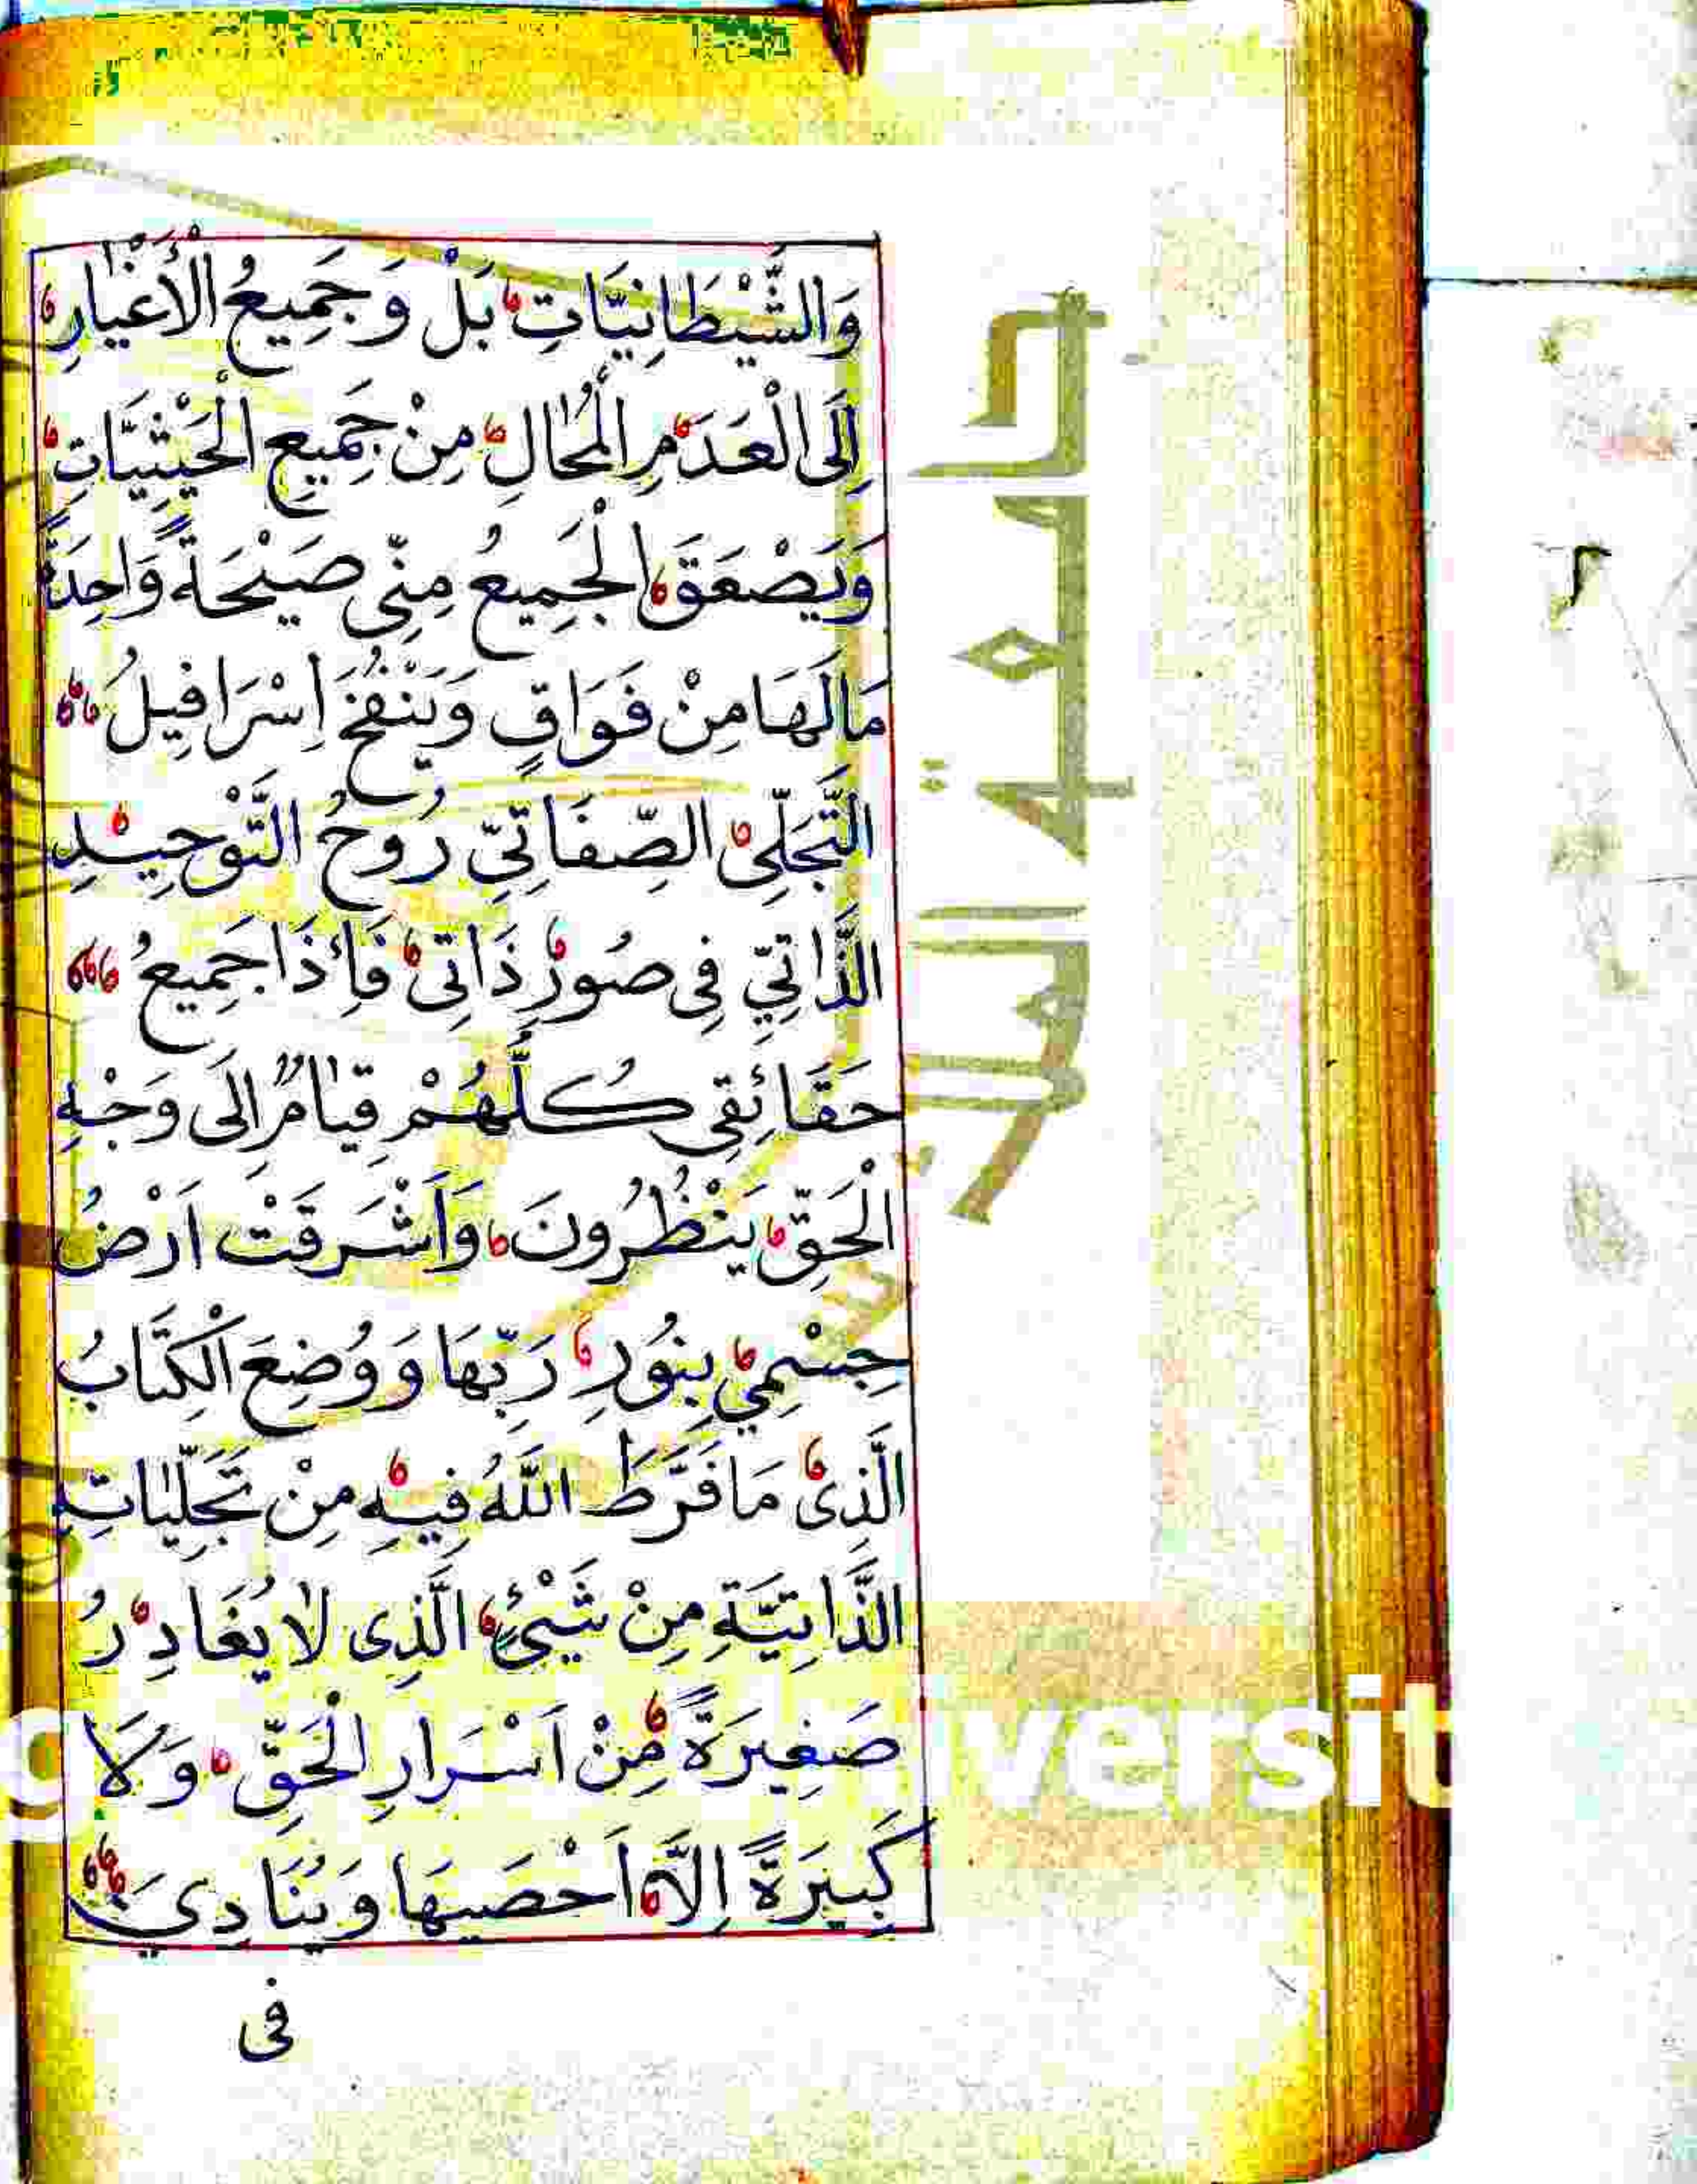 وَالشَّيْطَانِيَّاتِ بَلْ وَجَمِيعُ الْأَغْيَارِ
إِلَى الْعَدَمِ الْمُحَالِ مِنْ جَمِيعِ الْحَيْثِيَّاتِ
وَيَصْعَقَ الْجَمِيعُ مِنِّى صَيْحَةً وَاحِدَةً
مَالَهَا مِنْ فَوَاقٍ وَيَنْفُخَ اِسْرَافِيلُ
التَّجَلِّى الصِّفَاتِيِّ رُوحُ التَّوْحِيدِ
الذَّاتِيِّ فِى صُورِ ذَاتِى فَاِذَا جَمِيعُ
حَقَائِقِى كُلُّهُمْ قِيَامٌ اِلَى وَجْهِ
الْحَقِّ يَنْظُرُونَ وَاَشْرَقَتْ اَرْضُ
جِسْمِي بِنُورِ رَبِّهَا وَوُضِعَ الْكِتَابُ
الَّذِى مَا فَرَّطَ اللَّهُ فِيهِ مِنْ تَجَلِّيَاتِهِ
الذَّاتِيَّةِ مِنْ شَيْئٍ الَّذِى لَا يُغَادِرُ
صَغِيرَةً مِنْ اَسْرَارِ الْحَقِّ وَلَا
كَبِيرَةً اِلَّا اَحْصَيهَا وَيُنَادِيَ
فى
جامعة الملك
versit